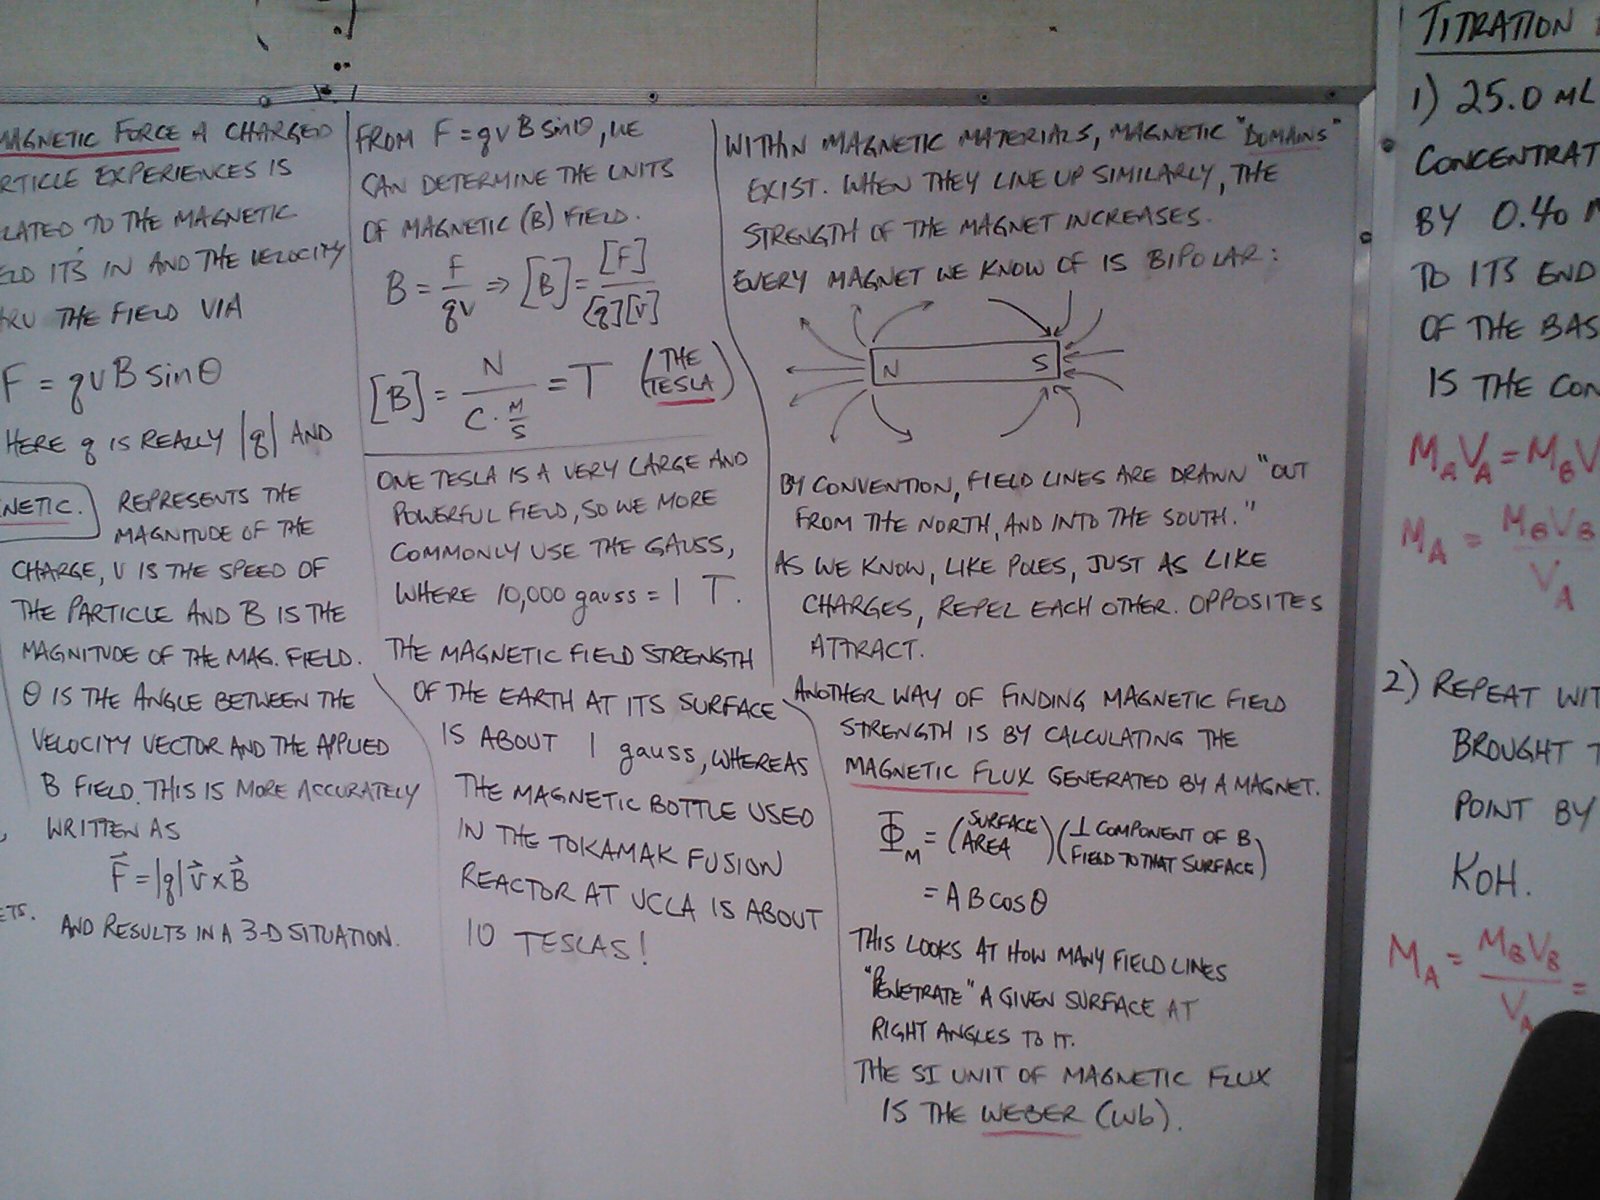 MAGNETIC FORCE A CHARGED
RTICLE EXPERIENCES IS
LATED TO THE MAGNETIC
ELD IT'S IN AND THE VELOCITY
HRU THE FIELD VIA
F = qvB sinθ
HERE q IS REALLY |q| AND
NETIC.
REPRESENTS THE
MAGNITUDE OF THE
CHARGE, V IS THE SPEED OF
THE PARTICLE AND B IS THE
MAGNITUDE OF THE MAG. FIELD.
θ IS THE ANGLE BETWEEN THE
VELOCITY VECTOR AND THE APPLIED
B FIELD. THIS IS MORE ACCURATELY
WRITTEN AS
F⃗ = |q| v⃗ x B⃗
ETS.
AND RESULTS IN A 3-D SITUATION.
FROM F = qvB sinθ, WE
CAN DETERMINE THE UNITS
OF MAGNETIC (B) FIELD.
B = F/qv ⇒ [B] = [F]/[q][v]
[B] = N/(C · M/S) = T (THE TESLA)
ONE TESLA IS A VERY LARGE AND
POWERFUL FIELD, SO WE MORE
COMMONLY USE THE GAUSS,
WHERE 10,000 gauss = 1 T.
THE MAGNETIC FIELD STRENGTH
OF THE EARTH AT ITS SURFACE
IS ABOUT 1 gauss, WHEREAS
THE MAGNETIC BOTTLE USED
IN THE TOKAMAK FUSION
REACTOR AT UCLA IS ABOUT
10 TESLAS!
WITHIN MAGNETIC MATERIALS, MAGNETIC "DOMAINS"
EXIST. WHEN THEY LINE UP SIMILARLY, THE
STRENGTH OF THE MAGNET INCREASES.
EVERY MAGNET WE KNOW OF IS BIPOLAR:
N S
BY CONVENTION, FIELD LINES ARE DRAWN "OUT
FROM THE NORTH, AND INTO THE SOUTH."
AS WE KNOW, LIKE POLES, JUST AS LIKE
CHARGES, REPEL EACH OTHER. OPPOSITES
ATTRACT.
ANOTHER WAY OF FINDING MAGNETIC FIELD
STRENGTH IS BY CALCULATING THE
MAGNETIC FLUX GENERATED BY A MAGNET.
Φ_M = (SURFACE AREA)(⊥ COMPONENT OF B FIELD TO THAT SURFACE)
= AB cosθ
THIS LOOKS AT HOW MANY FIELD LINES
"PENETRATE" A GIVEN SURFACE AT
RIGHT ANGLES TO IT.
THE SI UNIT OF MAGNETIC FLUX
IS THE WEBER (Wb).
TITRATION
1) 25.0 mL
CONCENTRAT
BY 0.40 M
TO ITS END
OF THE BAS
IS THE CON
M_A V_A = M_B V
M_A = M_B V_B / V_A
2) REPEAT WIT
BROUGHT T
POINT BY
KOH.
M_A = M_B V_B / V_A =